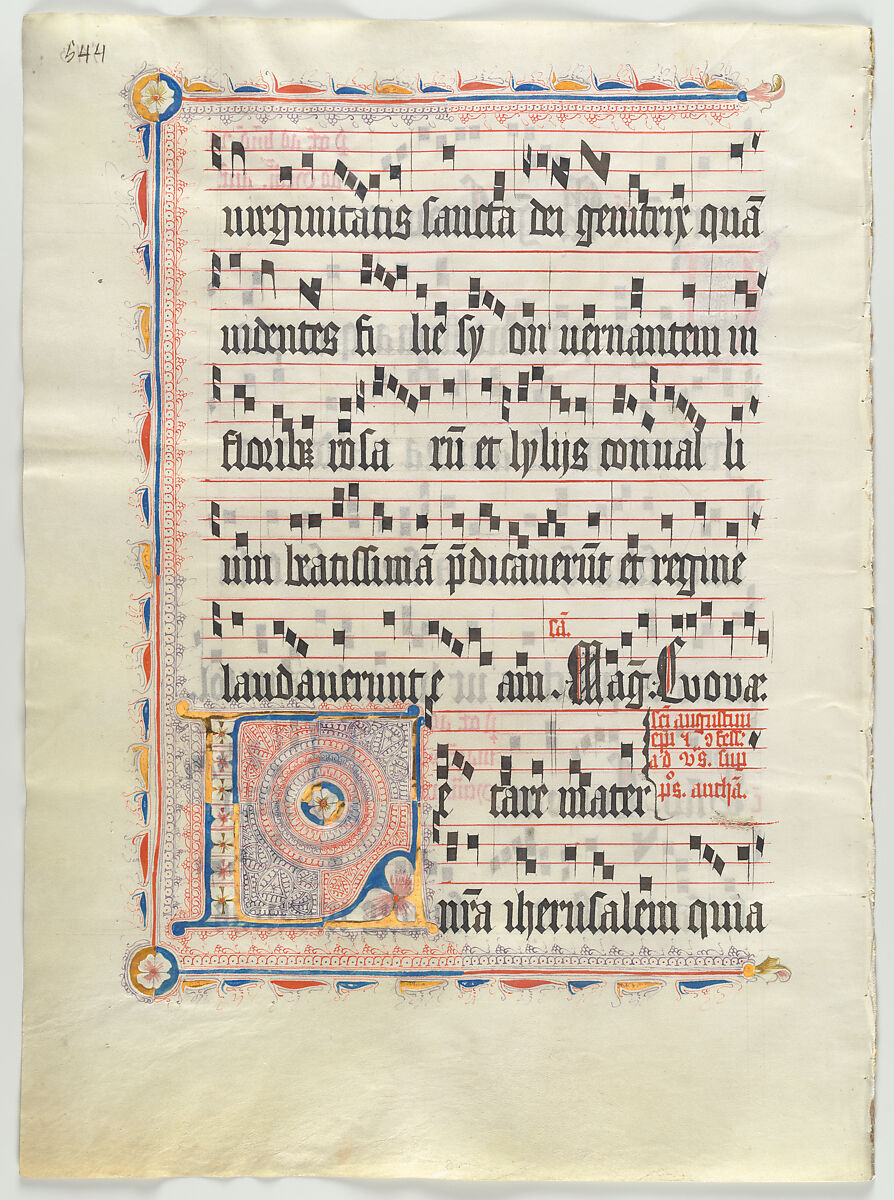 544
uirginitatis sancta dei genitrix quā
uidentes fi lie sy on uernantem in
floribꝫ rosa rū et lylijs conual li
um beatissimā p̄dicauerūt et regine
laudauerunt e am. sā. Maḡ: Euouae:
sc̄i augustini
ep̄i ⁊ ↄfess:
ad v̄s. sup
p̄s. anth̄a.
Le tare mater
nr̄a iherusalem quia